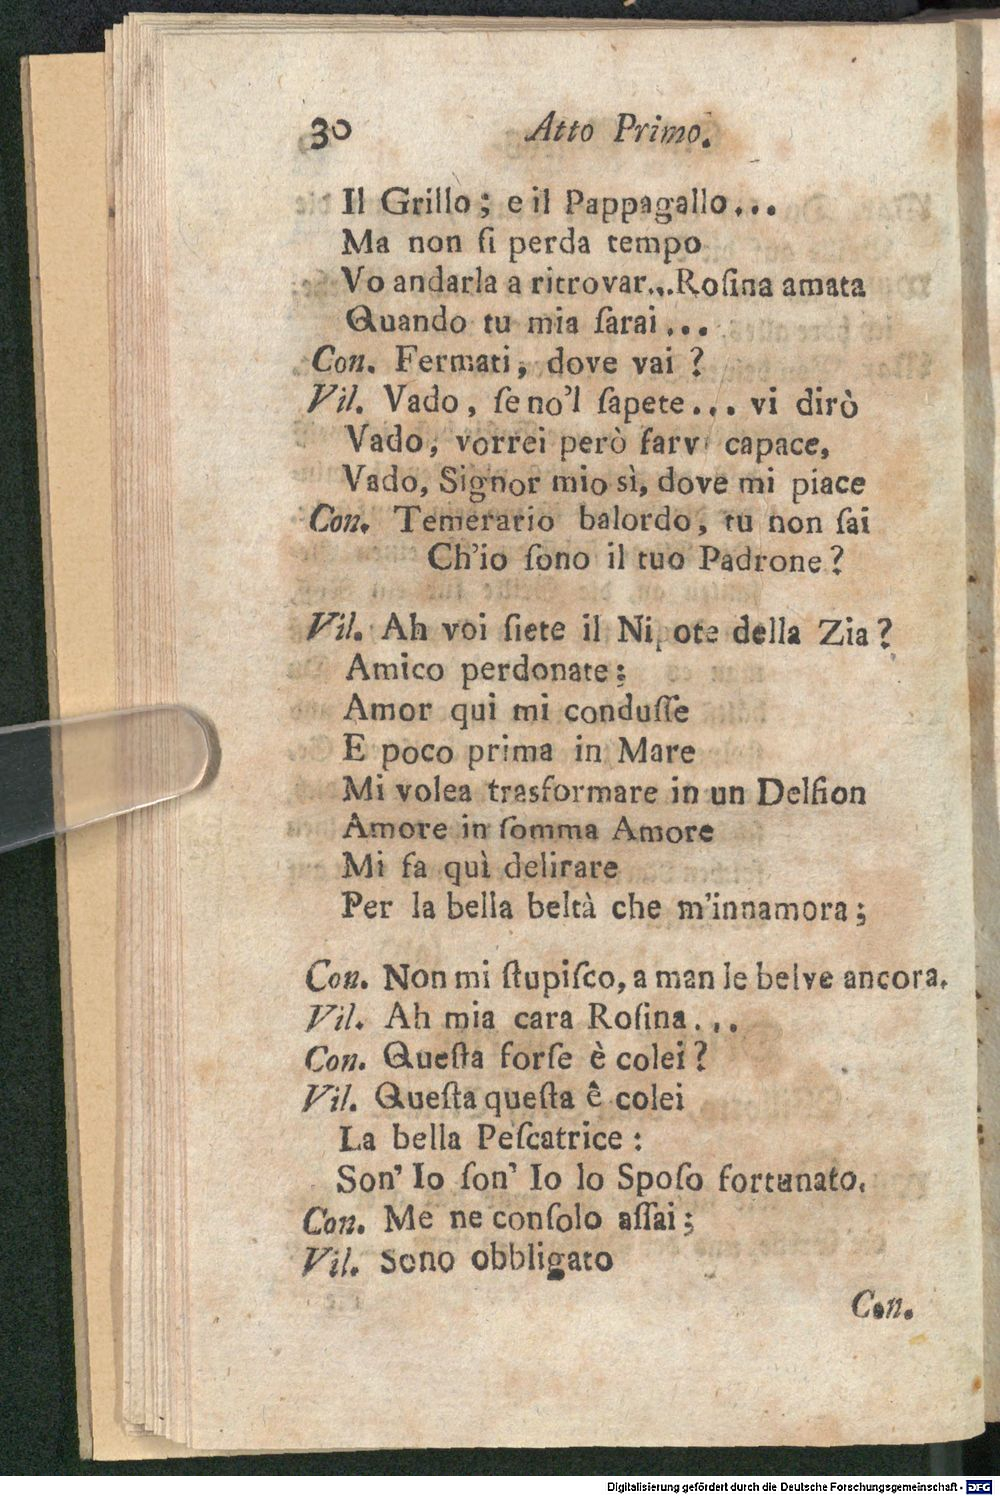 30 Atto Primo.
Il Grillo; e il Pappagallo...
Ma non ſi perda tempo
Vo andarla a ritrovar...Roſina amata
Quando tu mia ſarai...
Con. Fermati, dove vai?
Vil. Vado, ſe no'l ſapete... vi dirò
Vado, vorrei però farv capace,
Vado, Signor mio sì, dove mi piace
Con. Temerario balordo, tu non ſai
Ch'io ſono il tuo Padrone?
Vil. Ah voi ſiete il Nipote della Zia?
Amico perdonate;
Amor qui mi conduſſe
E poco prima in Mare
Mi volea trasformare in un Delfion
Amore in ſomma Amore
Mi fa quì delirare
Per la bella beltà che m'innamora;
Con. Non mi ſtupiſco, a man le belve ancora.
Vil. Ah mia cara Roſina...
Con. Queſta forſe è colei?
Vil. Queſta queſta ê colei
La bella Peſcatrice:
Son' Io ſon' Io lo Spoſo fortunato.
Con. Me ne conſolo aſſai;
Vil. Sono obbligato
Con.
Digitalisierung gefördert durch die Deutsche Forschungsgemeinschaft - DFG